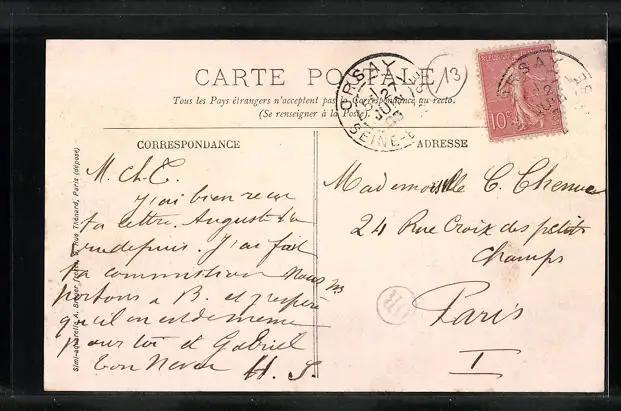 CARTE POSTALE
Tous les Pays étrangers n'acceptent pas la Correspondance au recto.
(Se renseigner à la Poste).
ORSAY
27
JUIN
SEINE-E
13
10
CORRESPONDANCE
M. ch. C.
J'ai bien recu
ta lettre. August l'a
depuis. J'ai fait
ta commission Nous
portons a B. et j'espère
qu'il en est de meme
pour toi et Gabriel
ton H. J.
ADRESSE
Mademoiselle C.
24 Rue Croix des petits
Champs
Paris
I
OR
Simili-aquarelle A. Rue Thénard, Paris (déposé)